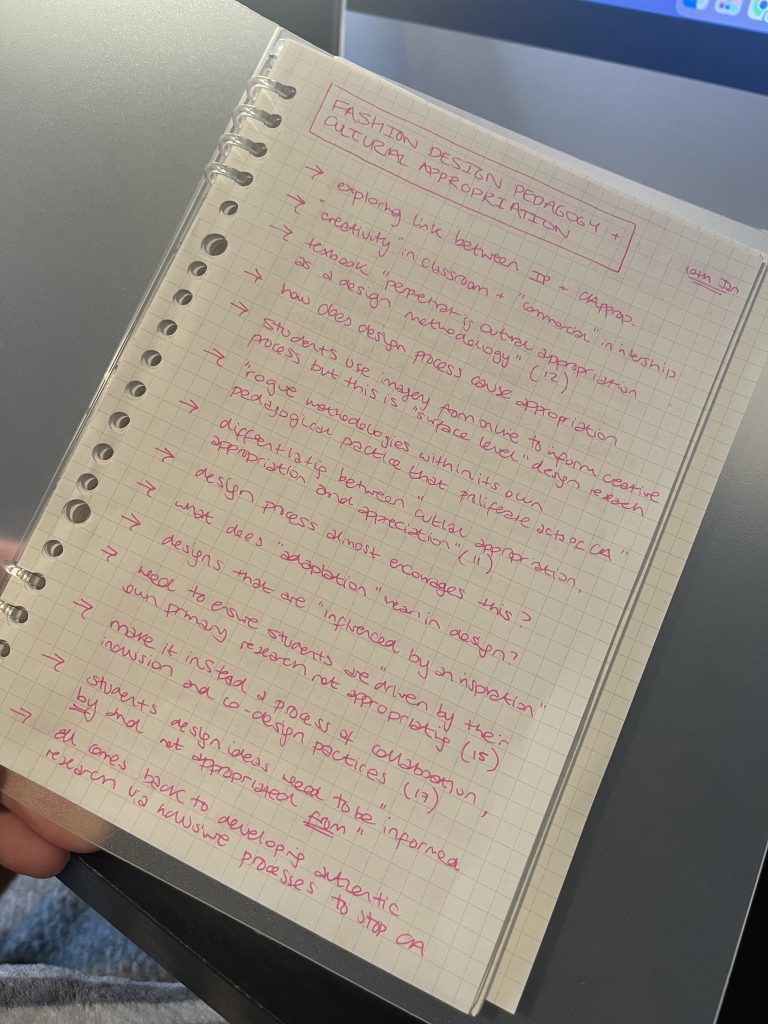 FASHION DESIGN PEDAGOGY +
CULTURAL APPROPRIATION
10th Jan
→ exploring link between IP + CApprop.
→ "creativity" in classroom + "commercial" in intership
→ texbook "perpetrat is cultral appropriation
as a design methodology" (12)
→ how does design process cause appropriation
→ students use imagery from online to inform creative
process but this is "surface level" design reseach
→ "rogue methodologies within its own
pedagogical practice that poliferate acts of CA"
→ differentiatig between "cultral appropriation,
appropriation and appreciation" (11)
→ design process almost encourages this?
→ what does "adaptation" mean in design?
→ designs that are "influenced by an inspiration"
→ need to ensure students are "driven by their
own primary research not appropriatig (15)
→ make it instead a process of collaboration,
inclusion and co-design practices (17)
→ students design ideas need to be "informed
by and not appropriated from"
→ all comes back to developing authentic
research via inclusive processes to stop CA